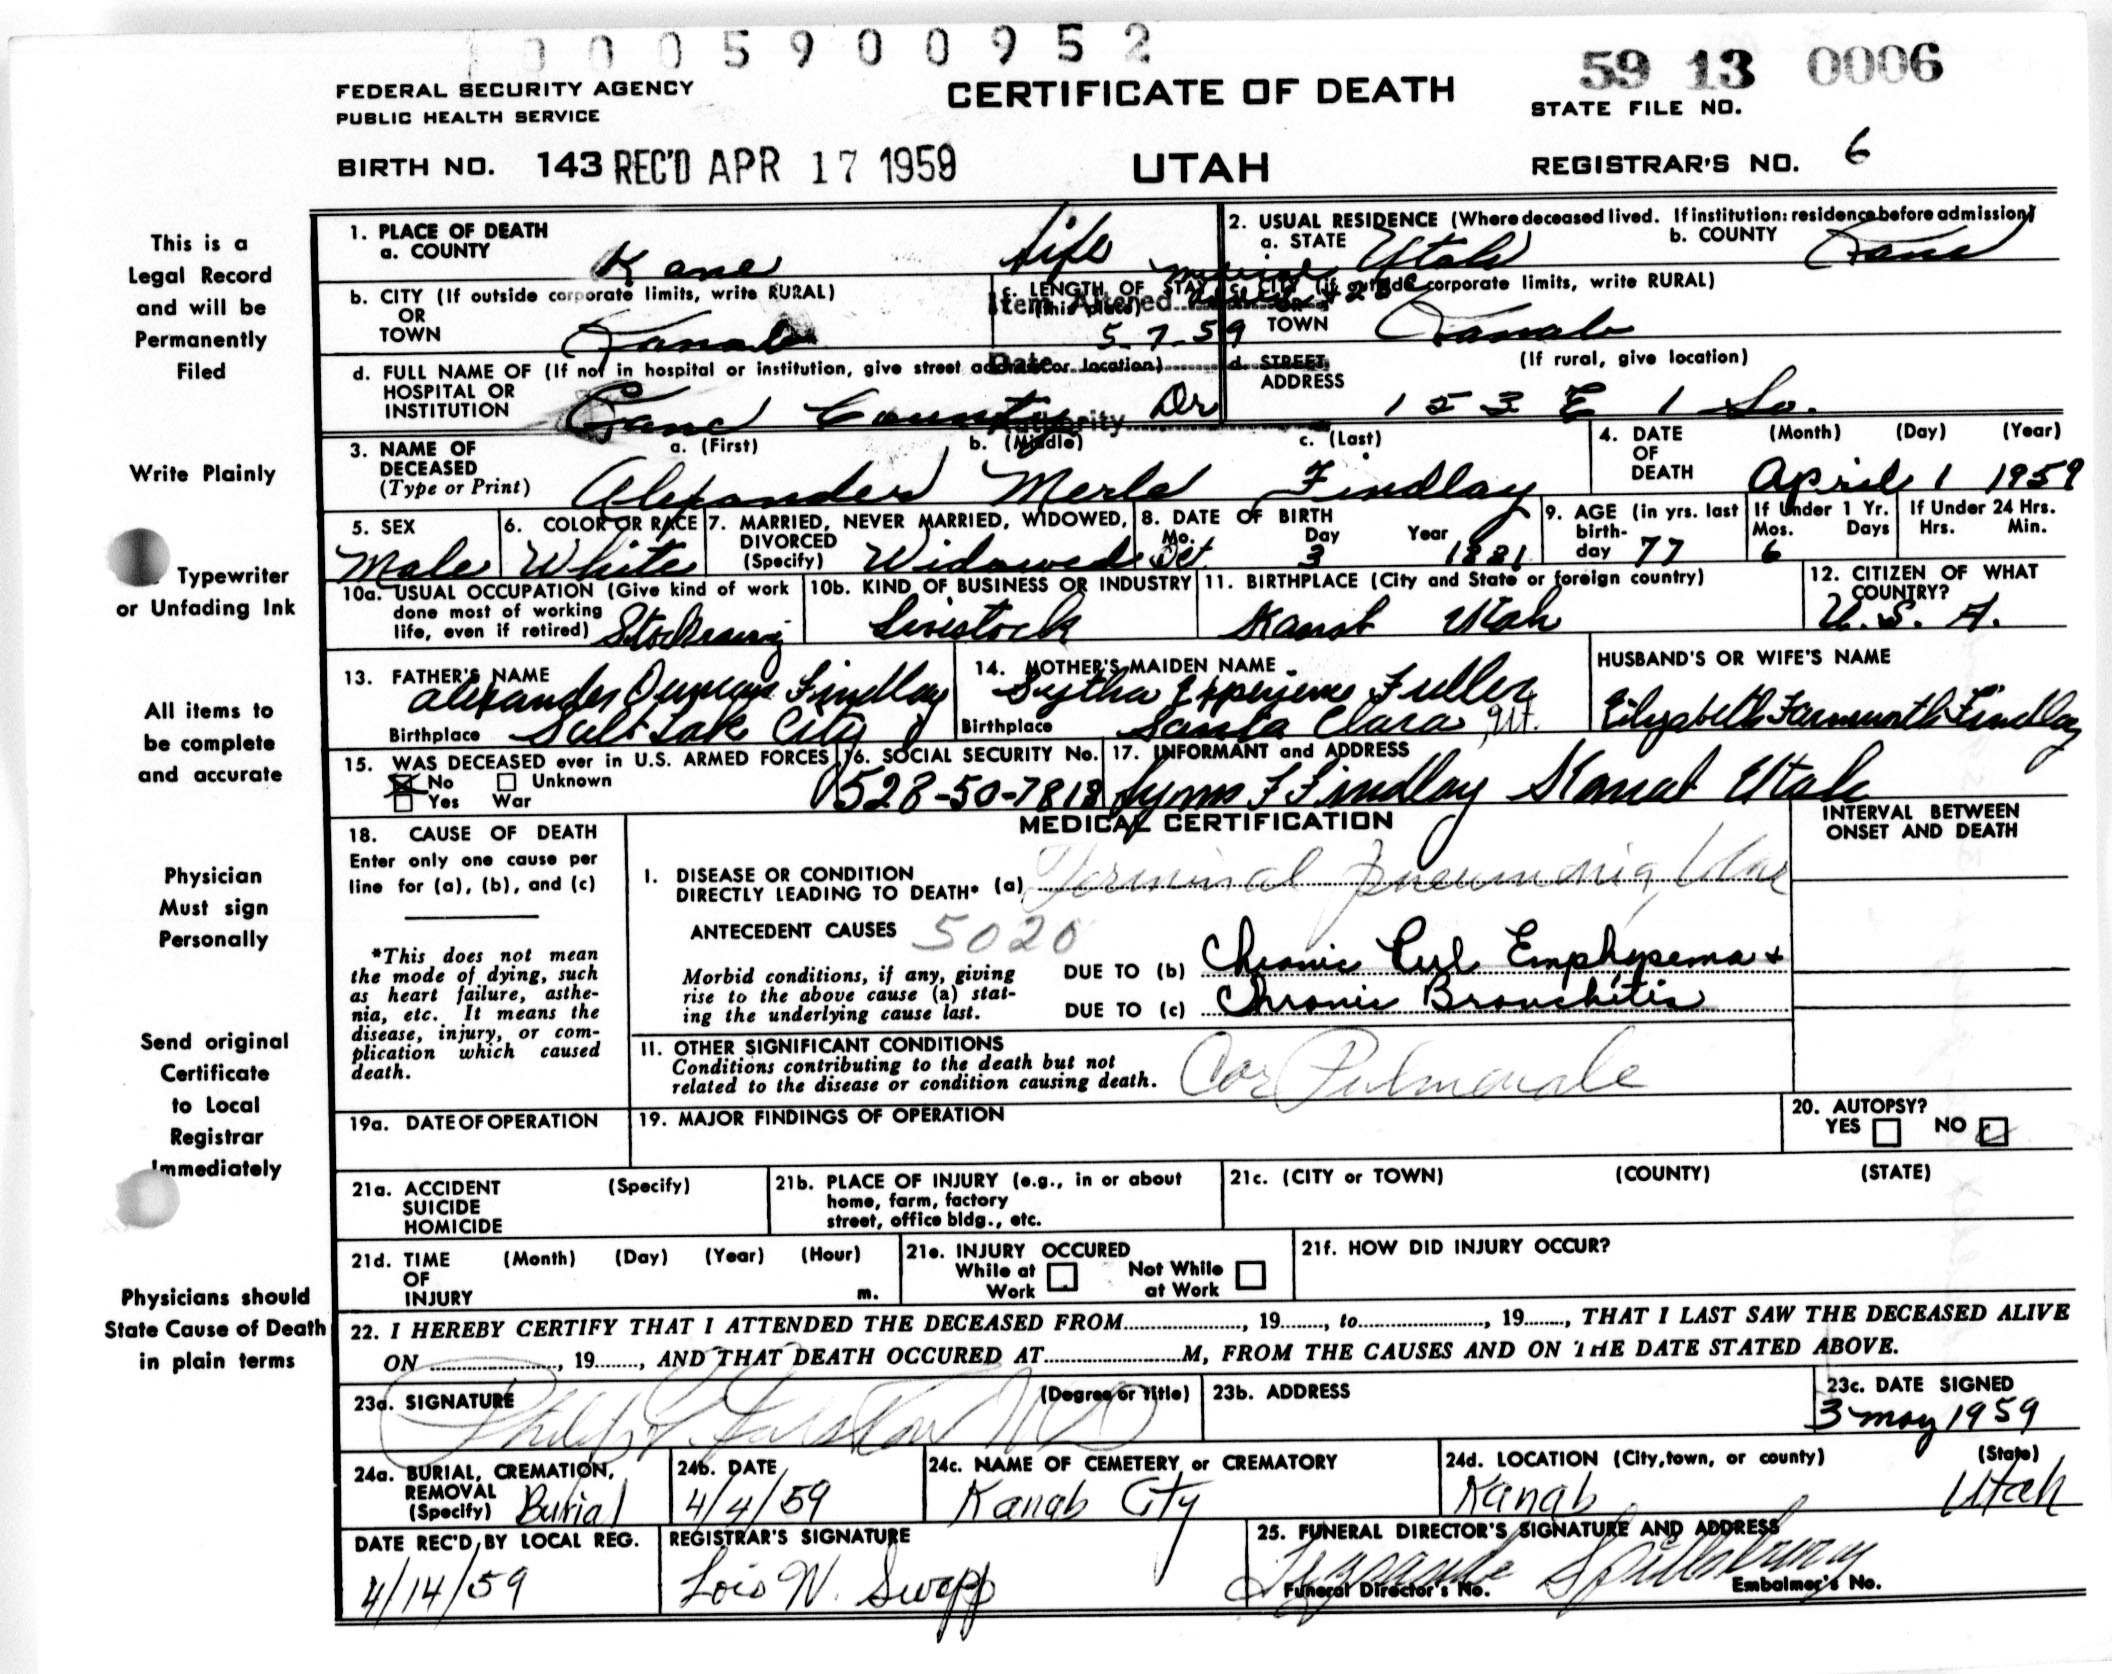 0005900952
59 13 0006
FEDERAL SECURITY AGENCY
PUBLIC HEALTH SERVICE
CERTIFICATE OF DEATH
STATE FILE NO.
BIRTH NO. 143 REC'D APR 17 1959
UTAH
REGISTRAR'S NO. 6
This is a
Legal Record
and will be
Permanently
Filed
Write Plainly
Typewriter
or Unfading Ink
All items to
be complete
and accurate
Physician
Must sign
Personally
Send original
Certificate
to Local
Registrar
Immediately
Physicians should
State Cause of Death
in plain terms
1. PLACE OF DEATH
a. COUNTY
Kane
Life
2. USUAL RESIDENCE (Where deceased lived. If institution: residence before admission)
a. STATE Utah
b. COUNTY Kane
b. CITY (If outside corporate limits, write RURAL)
OR
TOWN Kanab
c. LENGTH OF STAY
(in this place)
Item Altered
5-7-59
Date
Authority
Dr
c. CITY (if outside corporate limits, write RURAL)
OR
TOWN Kanab
d. FULL NAME OF (If not in hospital or institution, give street address or location)
HOSPITAL OR
INSTITUTION Kane County
d. STREET (If rural, give location)
ADDRESS 153 E 1 So.
3. NAME OF
DECEASED
(Type or Print)
a. (First) b. (Middle) c. (Last)
Alexander Merle Findlay
4. DATE
OF
DEATH
(Month) (Day) (Year)
April 1 1959
5. SEX
Male
6. COLOR OR RACE
White
7. MARRIED, NEVER MARRIED, WIDOWED,
DIVORCED
(Specify) Widowed
8. DATE OF BIRTH
Mo. Day Year
Oct. 3 1881
9. AGE (in yrs. last
birth-
day 77
If Under 1 Yr.
Mos. Days
6
If Under 24 Hrs.
Hrs. Min.
10a. USUAL OCCUPATION (Give kind of work
done most of working
life, even if retired) Stockraising
10b. KIND OF BUSINESS OR INDUSTRY
Livestock
11. BIRTHPLACE (City and State or foreign country)
Kanab Utah
12. CITIZEN OF WHAT
COUNTRY?
U.S.A.
13. FATHER'S NAME
Alexander Duncan Findlay
Birthplace Salt Lak City
14. MOTHER'S MAIDEN NAME
Experience Fuller
Birthplace Santa Clara, Ut.
HUSBAND'S OR WIFE'S NAME
Elizabeth Farnsworth Findlay
15. WAS DECEASED ever in U.S. ARMED FORCES
No Unknown
Yes War
16. SOCIAL SECURITY No.
528-50-7818
17. INFORMANT and ADDRESS
F Findlay Kanab Utah
18. CAUSE OF DEATH
Enter only one cause per
line for (a), (b), and (c)
*This does not mean
the mode of dying, such
as heart failure, asthe-
nia, etc. It means the
disease, injury, or com-
plication which caused
death.
MEDICAL CERTIFICATION
INTERVAL BETWEEN
ONSET AND DEATH
I. DISEASE OR CONDITION
DIRECTLY LEADING TO DEATH* (a) Terminal pneumonia,
ANTECEDENT CAUSES 5020
Morbid conditions, if any, giving
rise to the above cause (a) stat-
ing the underlying cause last.
DUE TO (b) Chronic Pul Emphysema +
DUE TO (c) Chronic Bronchitis
11. OTHER SIGNIFICANT CONDITIONS
Conditions contributing to the death but not
related to the disease or condition causing death.
Cor Pulmonale
19a. DATE OF OPERATION
19. MAJOR FINDINGS OF OPERATION
20. AUTOPSY?
YES NO
21a. ACCIDENT (Specify)
SUICIDE
HOMICIDE
21b. PLACE OF INJURY (e.g., in or about
home, farm, factory
street, office bldg., etc.
21c. (CITY or TOWN) (COUNTY) (STATE)
21d. TIME (Month) (Day) (Year) (Hour)
OF
INJURY m.
21e. INJURY OCCURED
While at Work
Not While at Work
21f. HOW DID INJURY OCCUR?
22. I HEREBY CERTIFY THAT I ATTENDED THE DECEASED FROM ........, 19....., to ........, 19....., THAT I LAST SAW THE DECEASED ALIVE
ON ........, 19....., AND THAT DEATH OCCURED AT ........M, FROM THE CAUSES AND ON THE DATE STATED ABOVE.
23a. SIGNATURE (Degree or title)
MD
23b. ADDRESS
23c. DATE SIGNED
3 May 1959
24a. BURIAL, CREMATION,
REMOVAL
(Specify) Burial
24b. DATE
4/4/59
24c. NAME OF CEMETERY or CREMATORY
Kanab City
24d. LOCATION (City, town, or county) (State)
Kanab Utah
DATE REC'D BY LOCAL REG.
4/14/59
REGISTRAR'S SIGNATURE
Lois N. Swapp
25. FUNERAL DIRECTOR'S SIGNATURE AND ADDRESS
Spillsbury
Funeral Director's No. Embalmer's No.